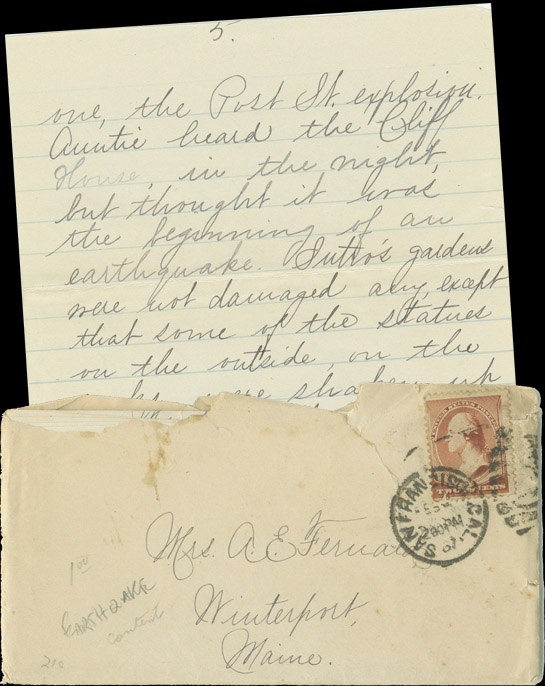 5.
one, the Post St. explosion.
Auntie heard the Cliff
House, in the night,
but thought it was
the beginning of an
earthquake. Sutro's gardens
were not damaged any, except
that some of the statues
on the outside, on the
were shaken up
TWO CENTS
SAN FRANCISCO, CAL.
Mrs. A. E. Fernald
Winterport,
Maine.
1.00
EARTHQUAKE
content
210